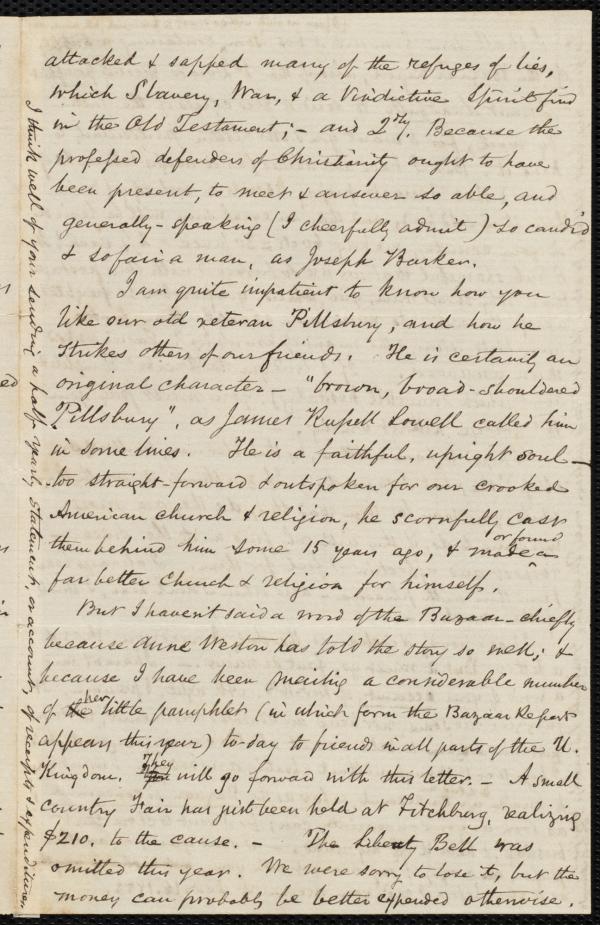 attacked & sapped many of the refuges of lies,
which Slavery, War, & a Vindictive Spirit find
in the Old Testament; – and 2dly. Because the
professed defenders of Christianity ought to have
been present, to meet & answer so able, and
generally-speaking (I cheerfully admit) so candid
& so fair a man, as Joseph Barker.
I am quite impatient to know how you
like our old veteran Pillsbury, and how he
strikes others of our friends. He is certainly an
original character – "brown, broad-shouldered
Pillsbury", as James Russell Lowell called him
in some lines. He is a faithful, upright soul –
too straight-forward & outspoken for our crooked
American church & religion, he scornfully cast
them behind him some 15 years ago, & made or found a
far better church & religion for himself.
But I haven't said a word of the Bazaar – chiefly
because Anne Weston has told the story so well; &
because I have been mailing a considerable number
of the her little pamphlet (in which form the Bazaar Report
appears this year) to-day to friends in all parts of the U.
Kingdom. They will go forward with this letter. – A small
country Fair has just been held at Fitchburg, realizing
$210. to the cause. – The Liberty Bell was
omitted this year. We were sorry to lose it, but the
money can probably be better expended otherwise.
I think well of your sending a half yearly statement, or account, of receipts & expenditures